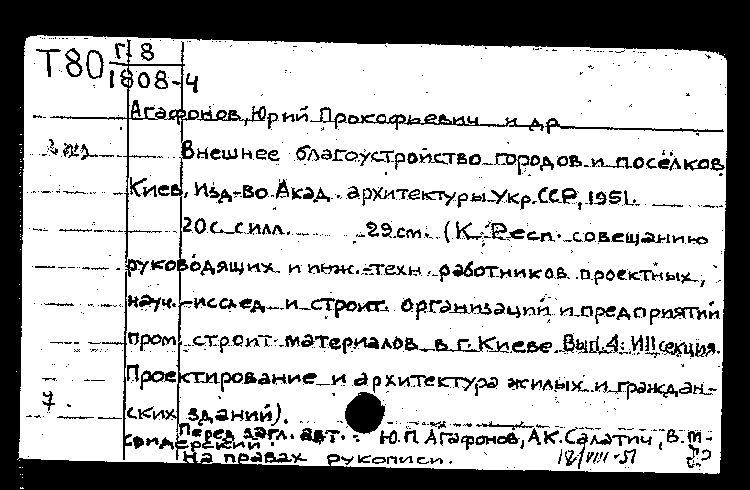 Т80 Г 8
1808-4
Агафонов, Юрий Прокофьевич и др
2 экз Внешнее благоустройство городов и посёлков
Киев, Изд-во Акад. архитектуры Укр. ССР, 1951.
20 с. с илл. 29 см. (К Респ. совещанию
руководящих и инж.-техн. работников проектных,
науч.-исслед. и строит. организаций и предприятий
пром. строит. материалов в г. Киеве Вып. 4: III секция.
Проектирование и архитектура жилых и граждан-
7.
ских зданий).
Перед загл. авт.: Ю.П. Агафонов, А.К. Салатич, В.М-
Свидерский.
На правах рукописи. 18/VIII-51